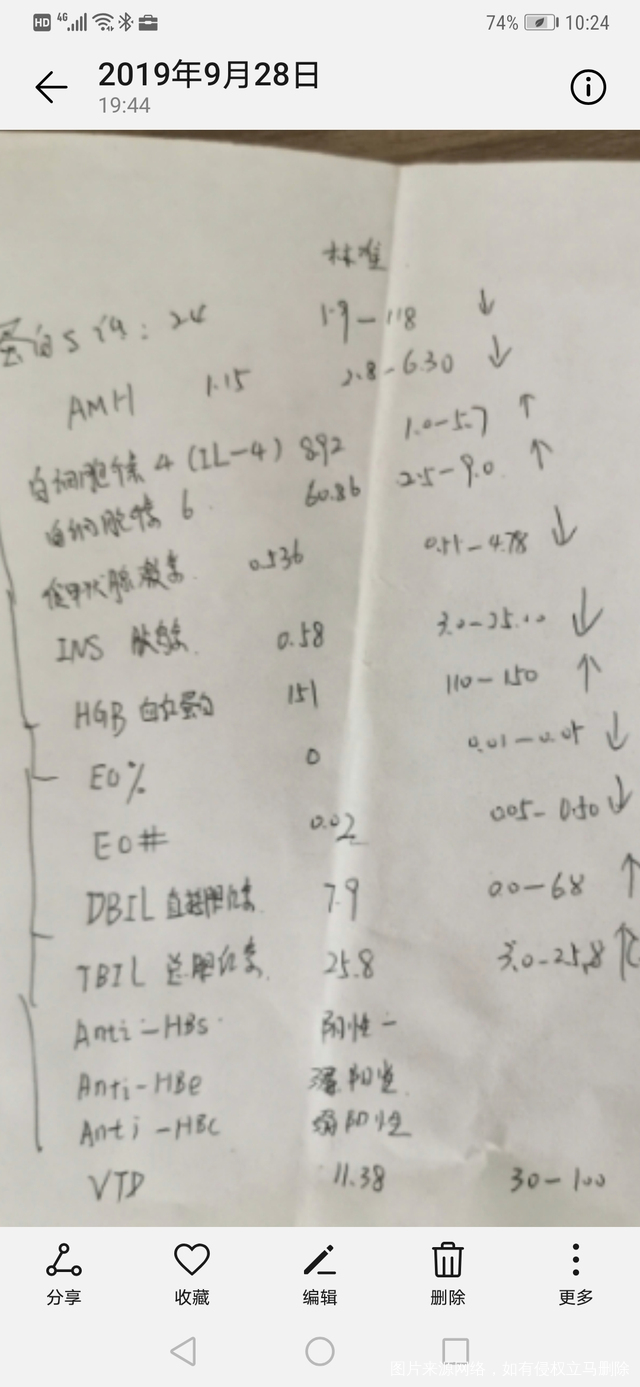 HD 4G 74% 10:24
2019年9月28日
19:44
标准
蛋白S 1.9-118 ↓
AMH 1.15 2.8-6.30 ↓
白细胞介素 4 (IL-4) 8.92 1.0-5.7 ↑
白细胞介素 6 60.86 2.5-9.0 ↑
促甲状腺激素 0.536 0.55-4.78 ↓
INS 胰岛素 0.58 3.0-25.00 ↓
HGB 血红蛋白 151 110-150 ↑
EO% 0 0.01-0.05 ↓
EO# 0.02 005-0.50 ↓
DBIL 直接胆红素 7.9 0.0-6.8 ↑
TBIL 总胆红素 25.8 ↑
Anti-HBs 阴性-
Anti-HBe 阳性
Anti-HBC 阳性
VTD 11.38 30-100
分享 收藏 编辑 删除 更多
图片来源网络，如有侵权立马删除